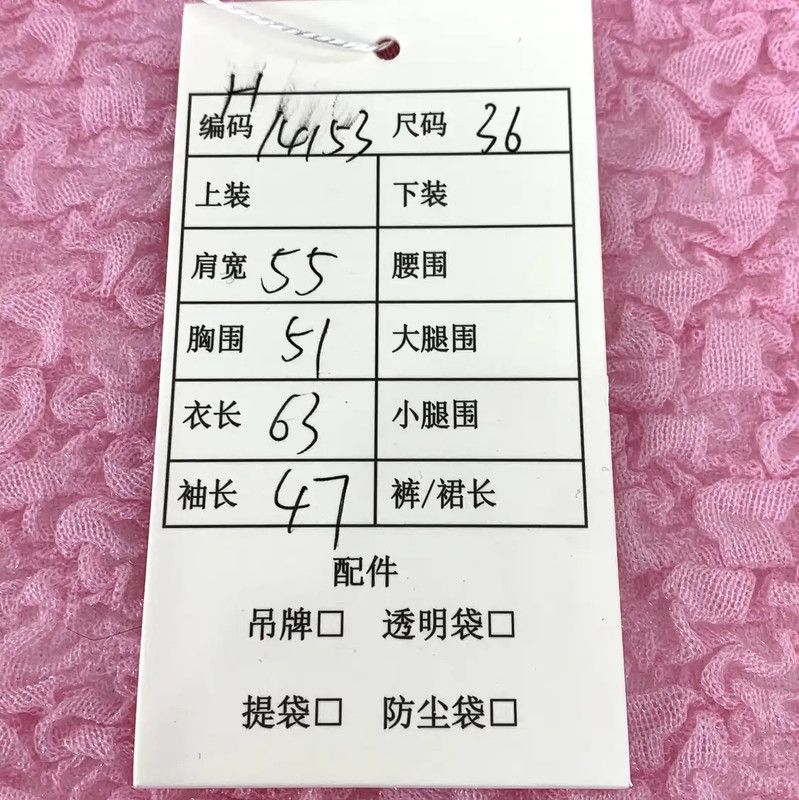 H
编码 14153 尺码 36
上装 下装
肩宽 55 腰围
胸围 51 大腿围
衣长 63 小腿围
袖长 47 裤/裙长
配件
吊牌□ 透明袋□
提袋□ 防尘袋□